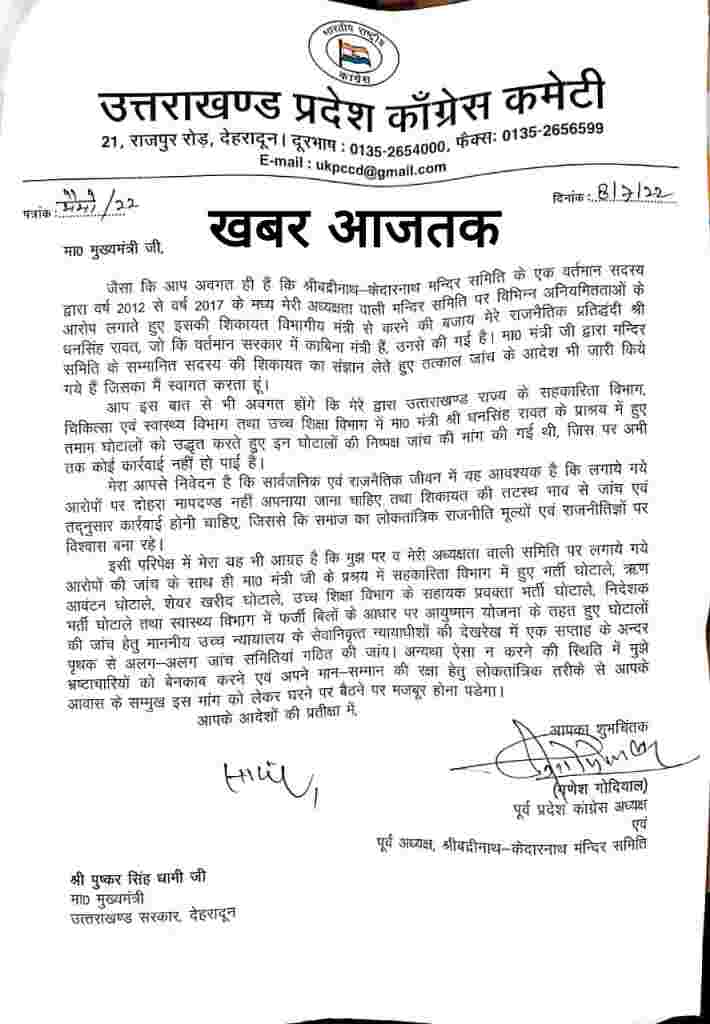 भारतीय राष्ट्रीय
कांग्रेस
उत्तराखण्ड प्रदेश काँग्रेस कमेटी
21, राजपुर रोड़, देहरादून। दूरभाष : 0135-2654000, फैक्स: 0135-2656599
E-mail : ukpccd@gmail.com
पत्रांक: /22
दिनांक: 8/7/22
खबर आजतक
मा0 मुख्यमंत्री जी,
जैसा कि आप अवगत ही हैं कि श्रीबद्रीनाथ–केदारनाथ मन्दिर समिति के एक वर्तमान सदस्य
द्वारा वर्ष 2012 से वर्ष 2017 के मध्य मेरी अध्यक्षता वाली मन्दिर समिति पर विभिन्न अनियमितताओं के
आरोप लगाते हुए इसकी शिकायत विभागीय मंत्री से करने की बजाय मेरे राजनैतिक प्रतिद्धंदी श्री
धनसिंह रावत, जो कि वर्तमान सरकार में काबिना मंत्री हैं, उनसे की गई है। मा0 मंत्री जी द्वारा मन्दिर
समिति के सम्मानित सदस्य की शिकायत का संज्ञान लेते हुए तत्काल जांच के आदेश भी जारी किये
गये हैं जिसका मैं स्वागत करता हूं।
आप इस बात से भी अवगत होंगे कि मेरे द्वारा उत्तराखण्ड राज्य के सहकारिता विभाग,
चिकित्सा एवं स्वास्थ्य विभाग तथा उच्च शिक्षा विभाग में मा0 मंत्री श्री धनसिंह रावत के प्राश्रय में हुए
तमाम घोटालों को उद्धृत करते हुए इन घोटालों की निष्पक्ष जांच की मांग की गई थी, जिस पर अभी
तक कोई कार्रवाई नहीं हो पाई है।
मेरा आपसे निवेदन है कि सार्वजनिक एवं राजनैतिक जीवन में यह आवश्यक है कि लगाये गये
आरोपों पर दोहरा मापदण्ड नहीं अपनाया जाना चाहिए तथा शिकायत की तटस्थ भाव से जांच एवं
तद्नुसार कार्रवाई होनी चाहिए, जिससे कि समाज का लोकतांत्रिक राजनीति मूल्यों एवं राजनीतिज्ञों पर
विश्वास बना रहे।
इसी परिपेक्ष में मेरा यह भी आग्रह है कि मुझ पर व मेरी अध्यक्षता वाली समिति पर लगाये गये
आरोपों की जांच के साथ ही मा0 मंत्री जी के प्रश्रय में सहकारिता विभाग में हुए भर्ती घोटाले, ऋण
आवंटन घोटाले, शेयर खरीद घोटाले, उच्च शिक्षा विभाग के सहायक प्रवक्ता भर्ती घोटाले, निदेशक
भर्ती घोटाले तथा स्वास्थ्य विभाग में फर्जी बिलों के आधार पर आयुष्मान योजना के तहत हुए घोटालों
की जांच हेतु माननीय उच्च न्यायालय के सेवानिवृत्त न्यायाधीशों की देखरेख में एक सप्ताह के अन्दर
पृथक से अलग–अलग जांच समितियां गठित की जांय। अन्यथा ऐसा न करने की स्थिति में मुझे
भ्रष्टाचारियों को बेनकाब करने एवं अपने मान–सम्मान की रक्षा हेतु लोकतांत्रिक तरीके से आपके
आवास के सम्मुख इस मांग को लेकर धरने पर बैठने पर मजबूर होना पडेगा।
आपके आदेशों की प्रतीक्षा में,
आपका शुभचिंतक
(गणेश गोदियाल)
पूर्व प्रदेश कांग्रेस अध्यक्ष
एवं
पूर्व अध्यक्ष, श्रीबद्रीनाथ–केदारनाथ मन्दिर समिति
श्री पुष्कर सिंह धामी जी
मा0 मुख्यमंत्री
उत्तराखण्ड सरकार, देहरादून